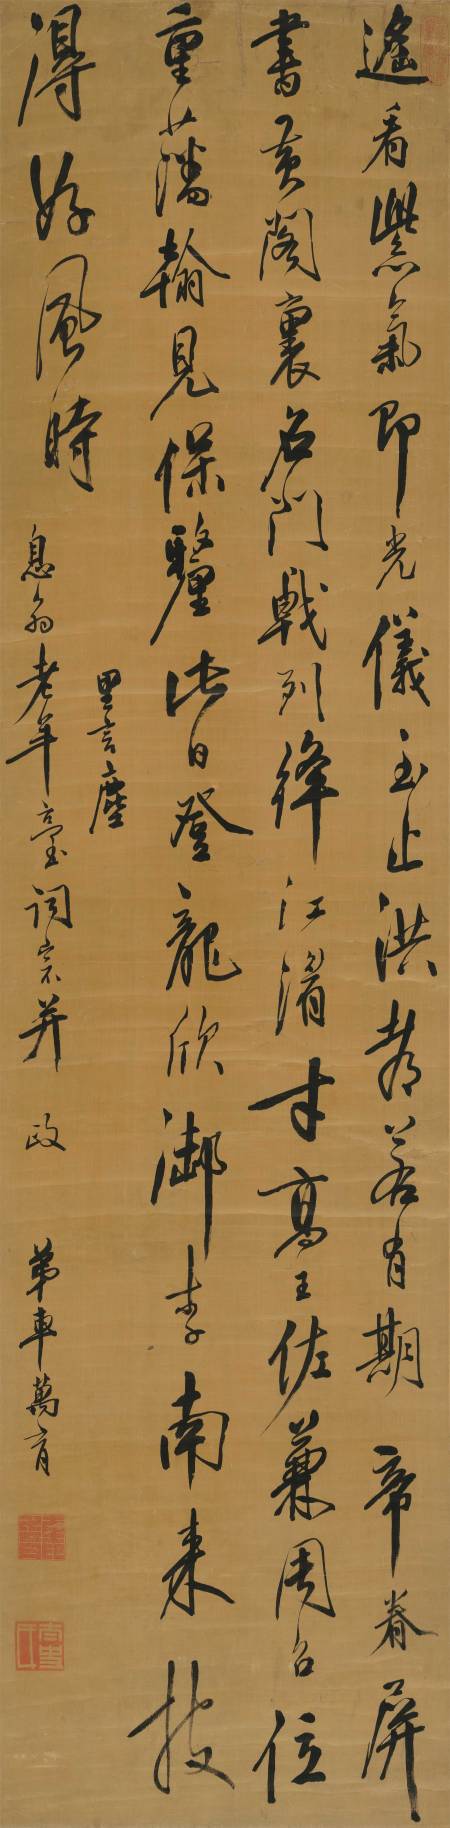 遙看紫氣即光儀至止洪都若有期帝眷屏
書黃閣裏名門戟列絳江湄才高王佐兼周召位
重藩翰見保釐此日登龍欣御李南來披
得好風時
里言塵
息翁老年臺詞宗并政
弟車萬育